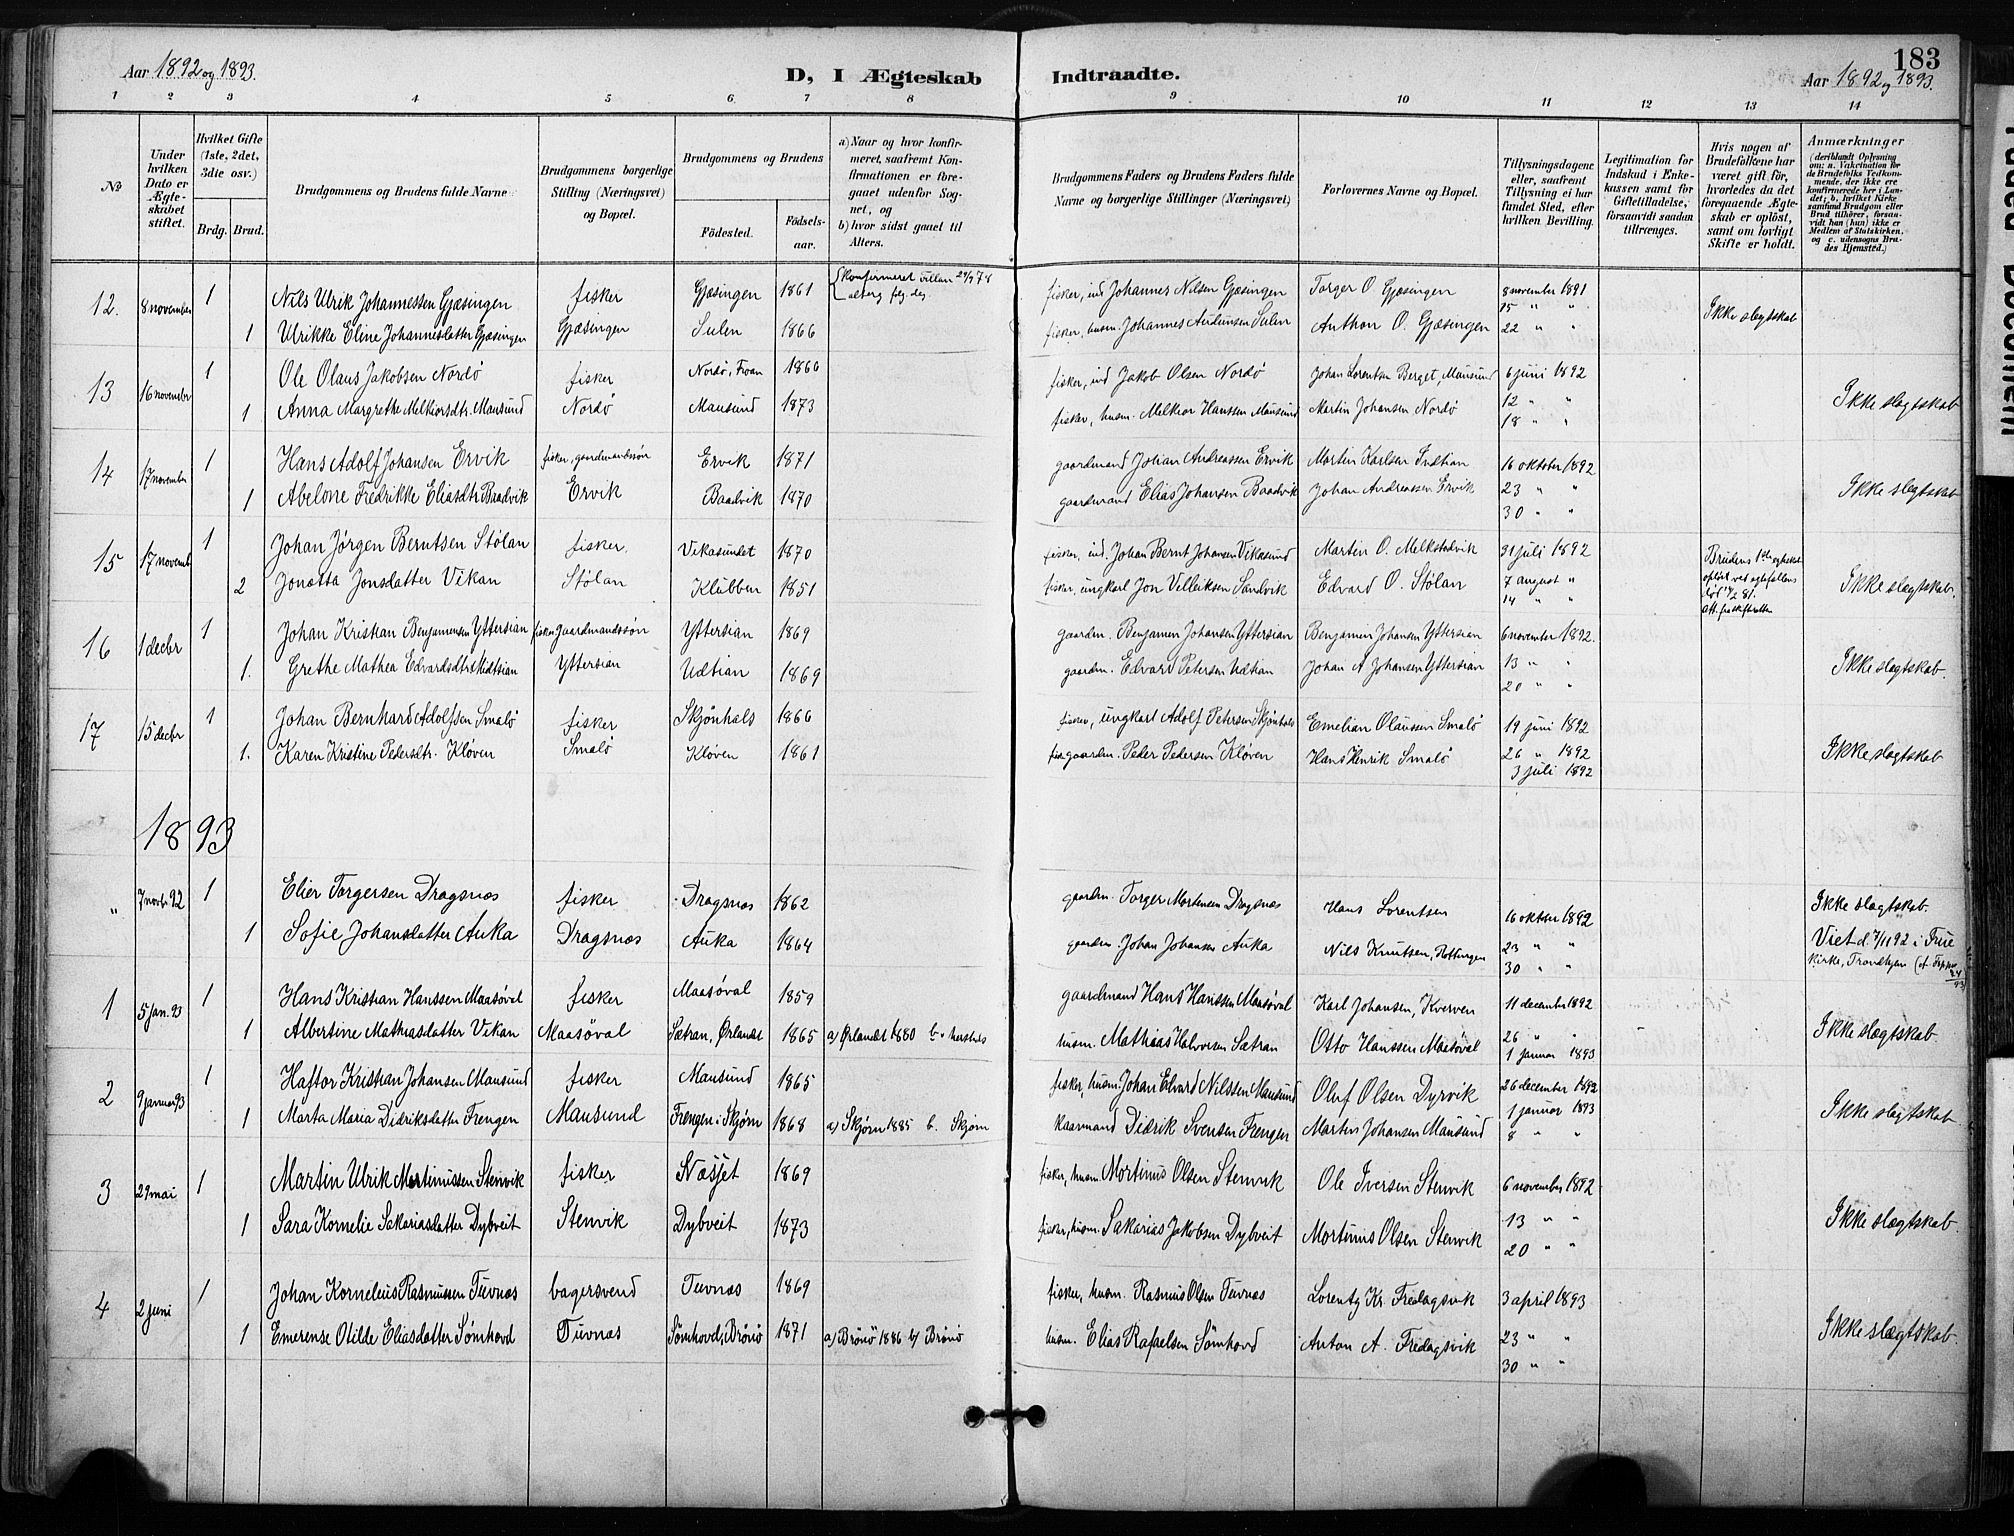 Aar 1892 og 1893.
D, I Ægteskab Indtraadte.
183
Aar 1892 og 1893.
1 2 3 4 5 6 7 8 9 10 11 12 13 14
No
Under hvilken Dato er Ægteskabet stiftet.
Hvilket Gifte (1ste, 2det, 3die osv.)
Brdg. Brud.
Brudgommens og Brudens fulde Navne
Brudgommens borgerlige Stilling (Næringsvei) og Bopæl.
Brudgommens og Brudens
Fødested. Fødselsaar.
a) Naar og hvor konfirmeret, saafremt Konfirmationen er foregaaet udenfor Sognet, og
b) hvor sidst gaaet til Alters.
Brudgommens Faders og Brudens Faders fulde Navne og borgerlige Stillinger (Næringsvei)
Forlovernes Navne og Bopæl.
Tillysningsdagene eller, saafremt Tillysning ei har fundet Sted, efter hvilken Bevilling.
Legitimation for Indskud i Enkekassen samt for Giftetilladelse, forsaavidt saadan tiltrænges.
Hvis nogen af Brudefolkene har været gift før, hvorledes da det foregaaende Ægteskab er opløst, samt om lovligt Skifte er holdt.
Anmærkninger
(deriblandt Oplysning om: a. Vakcination for de Brudefolks Vedkommende, der ikke ere konfirmerede her i Landet; b. hvilket Kirkesamfund Brudgom eller Brud tilhører, forsaavidt han (hun) ikke er Medlem af Statskirken, og c. udensogns Brudes Hjemsted.)
12. 8 november 1 Nils Ulrik Johannessen Gjæsingen fisker Gjæsingen 1861 konfirmeret fisker, ind Johannes Nilsen Gjæsingen Torger O. Gjæsingen 8 november 1891
15 " "
1 Ulrikke Eline Johannesdatter Gjæsingen Gjæsingen Sulen 1866 fisker, husm. Johannes Audunsen Sulen Anthon O. Gjæsingen 22 " " Ikke slegtskab
13 16 november 1 Ole Olaus Jakobsen Nordø fisker Nordø, Froan 1866 fisker, ind Jakob Olsen Nordø Johan Lorentsen Berget, Mausund 6 juni 1892
1 Anna Margrethe Melkiorsdtr. Mausund Nordø Mausund 1873 fisker, husm. Melkior Hanssen Mausund Martin Johansen Nordø 12 " " Ikke slægtskab
18 " "
14 17 november 1 Hans Adolf Johansen Ervik fisker, gaardmandssøn Ervik 1871 gaardmand Johan Andreassen Ervik Martin Karlsen Indtian 16 oktober 1892
1 Abelone Fredrikke Eliasdtr. Baadvik Ervik Baadvik 1870 gaardmand Elias Johansen Baadvik Johan Andreassen Ervik 23 " " Ikke slægtskab
30 " "
15 17 novemb. 1 Johan Jørgen Berntsen Stølan fisker, Vikasundet 1870 fisker, ind. Johan Bernt Johansen Vikasund Martin O. Melkstadvik 31 juli 1892
2 Jonetta Jonsdatter Vikan Stølan Klubben 1851 fisker, ungkarl Jon Villeiksen Sandvik Edvard O. Stølan 7 august " Ikke slægtskab.
14 " "
16 1 decbr 1 Johan Kristian Benjaminsen Yttersian fisker, gaardmandssøn Yttersian 1869 gaardm. Benjamin Johansen Yttersian Benjamin Johansen Yttersian 6 november 1892.
1. Grethe Mathea Edvardsdtr. Udtian Yttersian Udtian 1869 gaardm. Edvard Petersen Udtian Johan A Johansen Yttersian 13 " " Ikke slægtskab.
20 " "
17 15 decbr 1 Johan Bernhard Adolfsen Smalø fisker Skjønhals 1866 fisker, ungkarl Adolf Petersen Skjønhals Emelian Olaussen Smalø 19 juni 1892
1. Karen Kristine Pedersdtr. Kløven Smalø Kløven 1861 gaardm. Peder Pedersen Kløven Hans Henrik Smalø 26 " 1892 Ikke slægtskab
3 juli 1892
1893
" 7 novb. 92 1 Elier Torgersen Dragsnæs fisker Dragsnæs 1862 gaardm. Torger Mortensen Dragsnæs Hans Lorentsen 16 oktbr 1892 Ikke slægtskab.
1 Sofie Johansdatter Auka Dragsnæs Auka 1864 gaardm. Johan Johansen Auka Nils Knutsen, Hottingen 23 " " Viet d. 7/11 92 i Frue
30 " " kirke, Trondhjem
1 5 jan. 93 1 Hans Kristian Hanssen Maasøval fisker Maasøval 1859 gaardmand Hans Hanssen Maasøval Karl Johansen, Kverven 11 december 1892
1 Albertine Mathiasdatter Vikan Maasøval Sætran, Ørlandet 1865 a) Ørlandet 1880 husm. Mathias Halvorsen Sætran Otto Hanssen Maasøval 26 " " Ikke slægtskab.
1 januar 1893
2 9 januar 93 1 Haftor Kristian Johansen Mausund fisker Mausund 1865 fisker, husm. Johan Edvard Nilssen Mausund Oluf Olsen Dyrvik 26 december 1892
1 Marta Maria Didriksdatter Frengen Mausund Frengen i Skjørn 1868 a) Skjørn 1885 b. Skjørn kaarmand Didrik Svensen Frengen Martin Johansen Mausund 1 januar 1893 Ikke slægtskab
8 " "
3 29 mai 1 Martin Ulrik Mortinussen Stenvik fisker Næsset 1869 fisker, husm. Mortinus Olsen Stenvik Ole Iversen Stenvik 6 november 1892
1 Sara Kornelie Sakariasdatter Dybveit Stenvik Dybveit 1873 fisker, husm. Sakarias Jakobsen Dybveit Mortinus Olsen Stenvik 13 " " Ikke slægtskab.
20 " "
4 2 juni 1 Johan Kornelius Rasmussen Tuvnæs bagersvend Tuvnæs 1869 fisker, husm. Rasmus Olsen Tuvnæs Lorentz Kr. Fredagsvik 3 april 1893
1 Emerense Otilde Eliasdatter Sømhovd Tuvnæs Sømhovd, Brønø 1871 a) Brønø 1886 b) Brønø husm. Elias Rafaelsen Sømhovd Anton A. Fredagsvik 23 " " Ikke slægtskab.
30 " "